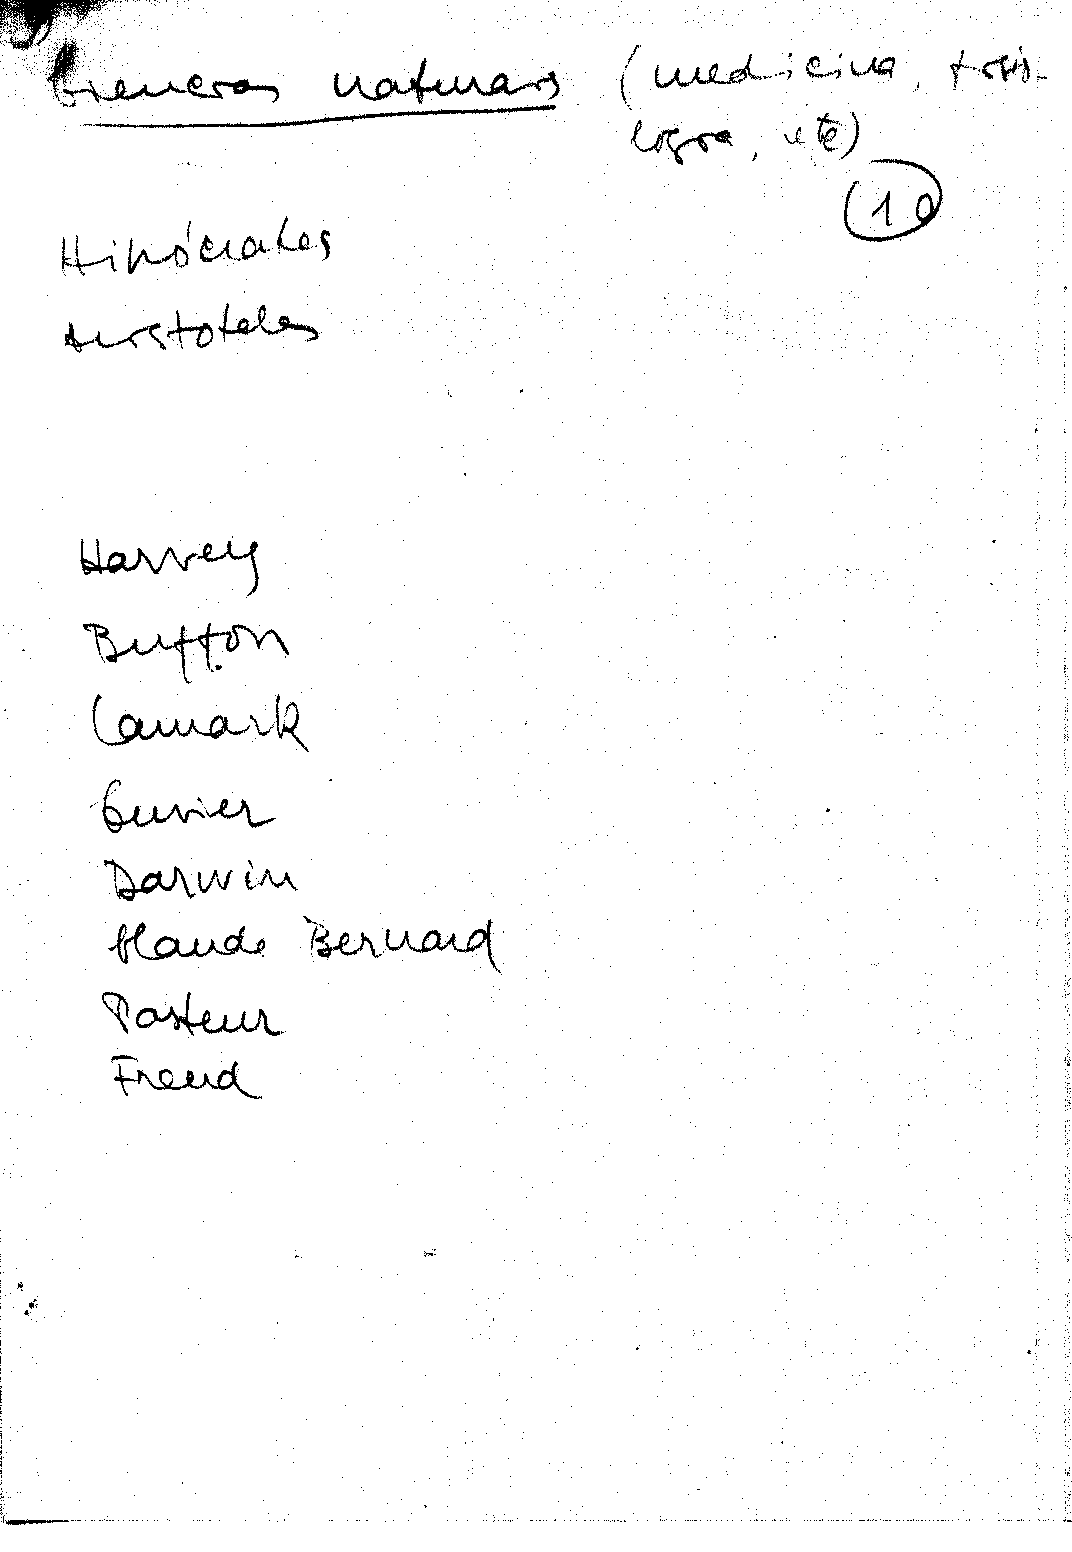 Ciencias naturais (medicina, fisio-
logia, etc)
10
Hipócrates
Aristoteles
Harvey
Buffon
Lamark
Cuvier
Darwin
Claude Bernard
Pasteur
Freud